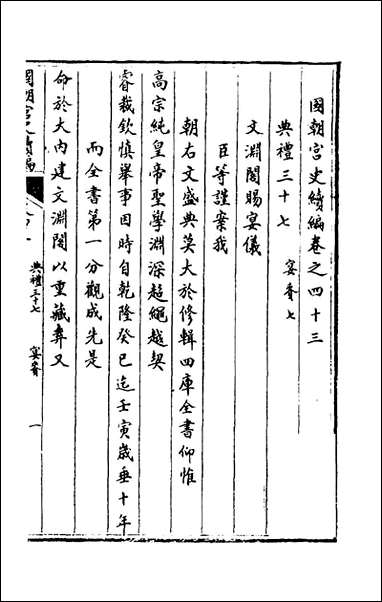 國朝宮史續編卷之四十三
典禮三十七 宴賚七
文淵閣賜宴儀
臣等謹案我
朝右文盛典莫大於修輯四庫全書仰惟
高宗純皇帝聖學淵深超繩越契
睿裁欽慎舉事因時自乾隆癸巳迄壬寅歲垂十年
而全書第一分觀成先是
命於大內建文淵閣以重藏弆又
國朝宮史續編
典禮三十七 宴賚 一